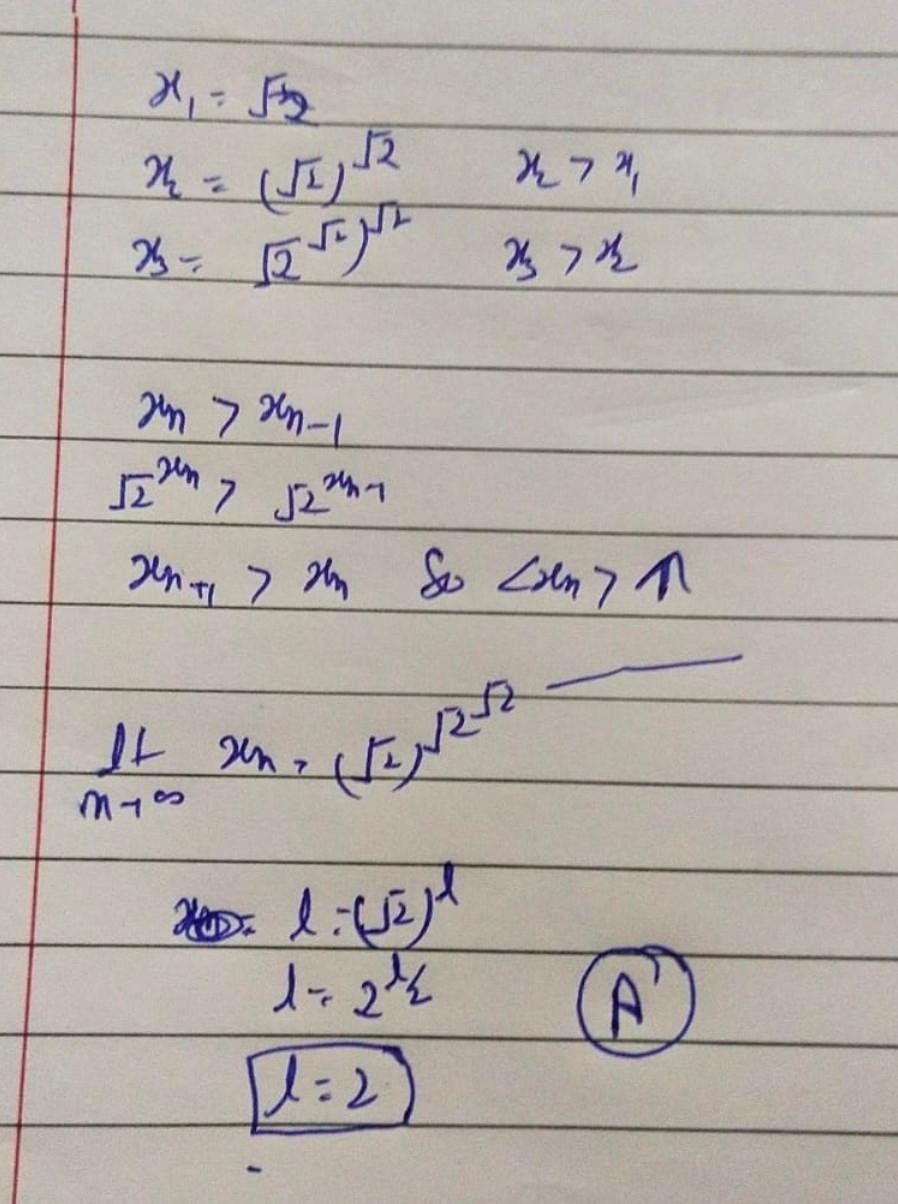 x₁ = √2
x₂ = (√2)^√2 x₂ > x₁
x₃ = √2^√2)^√2 x₃ > x₂
xn > xn-1
√2^xn > √2^xn-1
xn+1 > xn So <xn> ↑
lt xn = (√2)^√2^√2
n→∞
l = (√2)^l
l = 2^l/2
A
l = 2